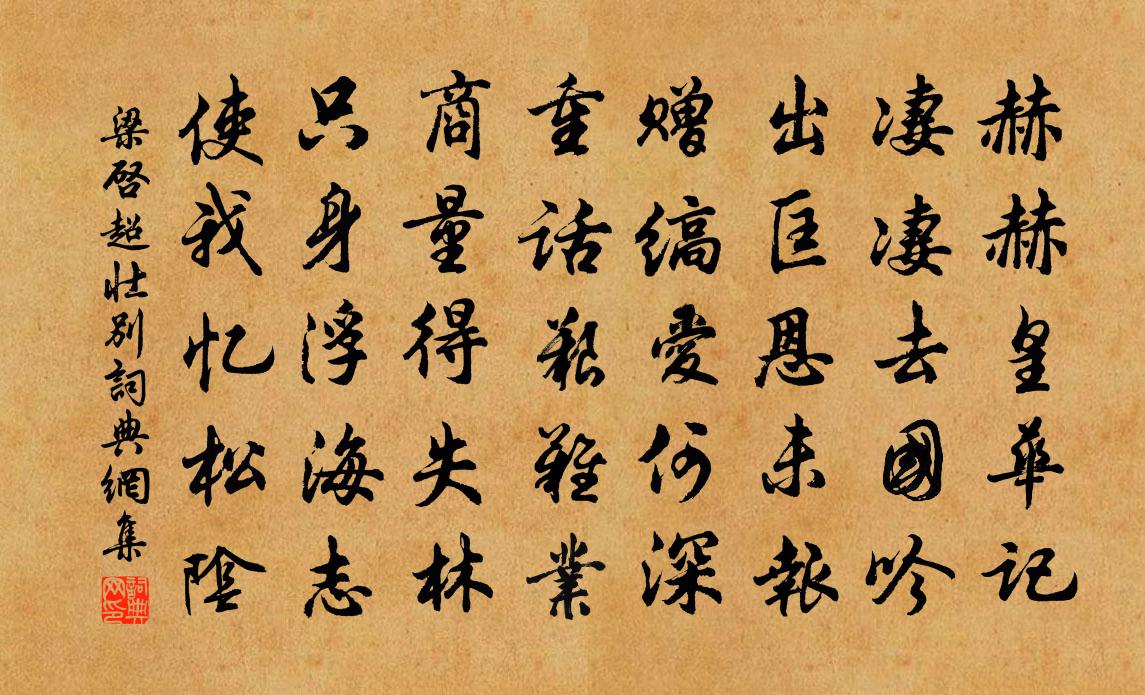 赫赫皇華記
凄凄去國吟
出匡恩未報
贈縞愛何深
重話艱難業
商量得失林
只身浮海志
使我忆松陰
梁啓超壯別詞典網集
詞典网印